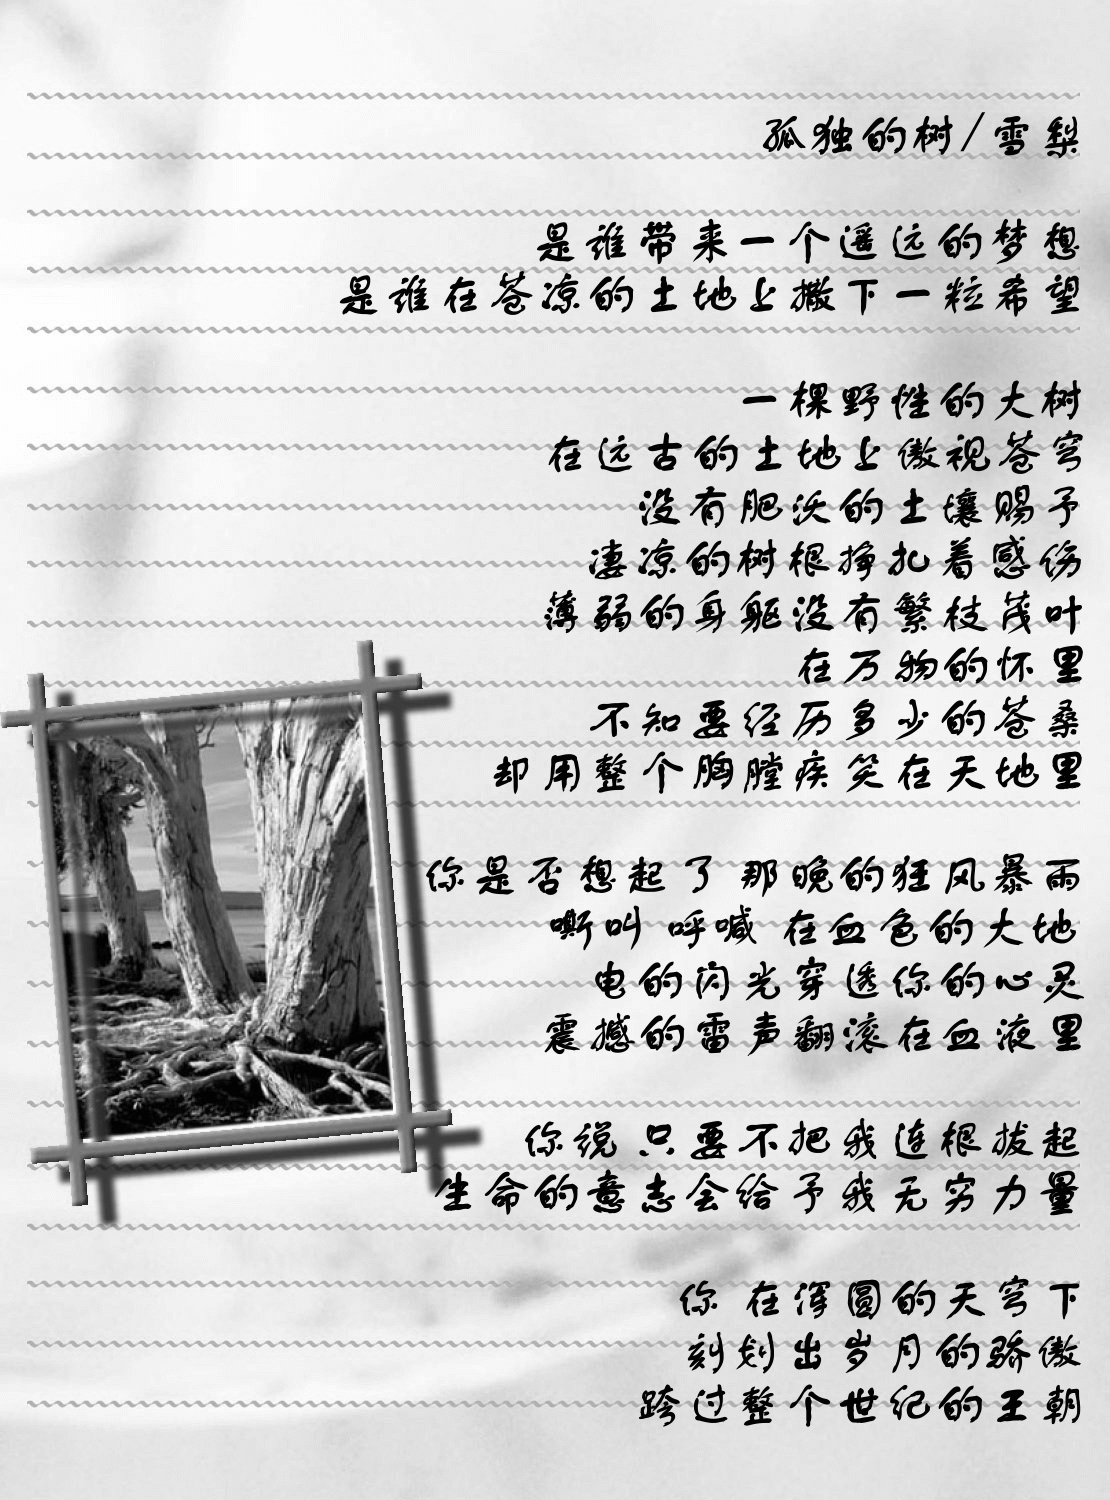 孤独的树/雪梨
是谁带来一个遥远的梦想
是谁在苍凉的土地上撒下一粒希望
一棵野性的大树
在远古的土地上傲视苍穹
没有肥沃的土壤赐予
凄凉的树根挣扎着感伤
薄弱的身躯没有繁枝茂叶
在万物的怀里
不知要经历多少的苍桑
却用整个胸膛疾笑在天地里
你是否想起了 那晚的狂风暴雨
嘶叫 呼喊 在血色的大地
电的闪光穿透你的心灵
震撼的雷声翻滚在血液里
你说 只要不把我连根拔起
生命的意志会给予我无穷力量
你 在浑圆的天穹下
刻划出岁月的骄傲
跨过整个世纪的王朝